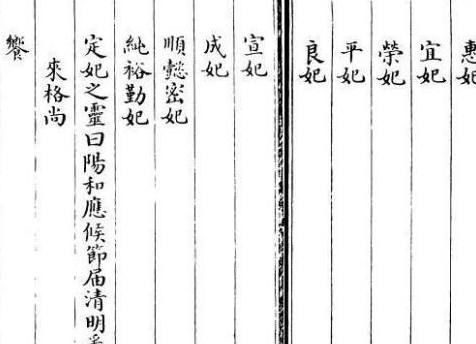 惠妃
宜妃
榮妃
平妃
良妃
宣妃
成妃
順懿密妃
純裕勤妃
定妃之靈曰陽和應候節届清明
來格尚
饗